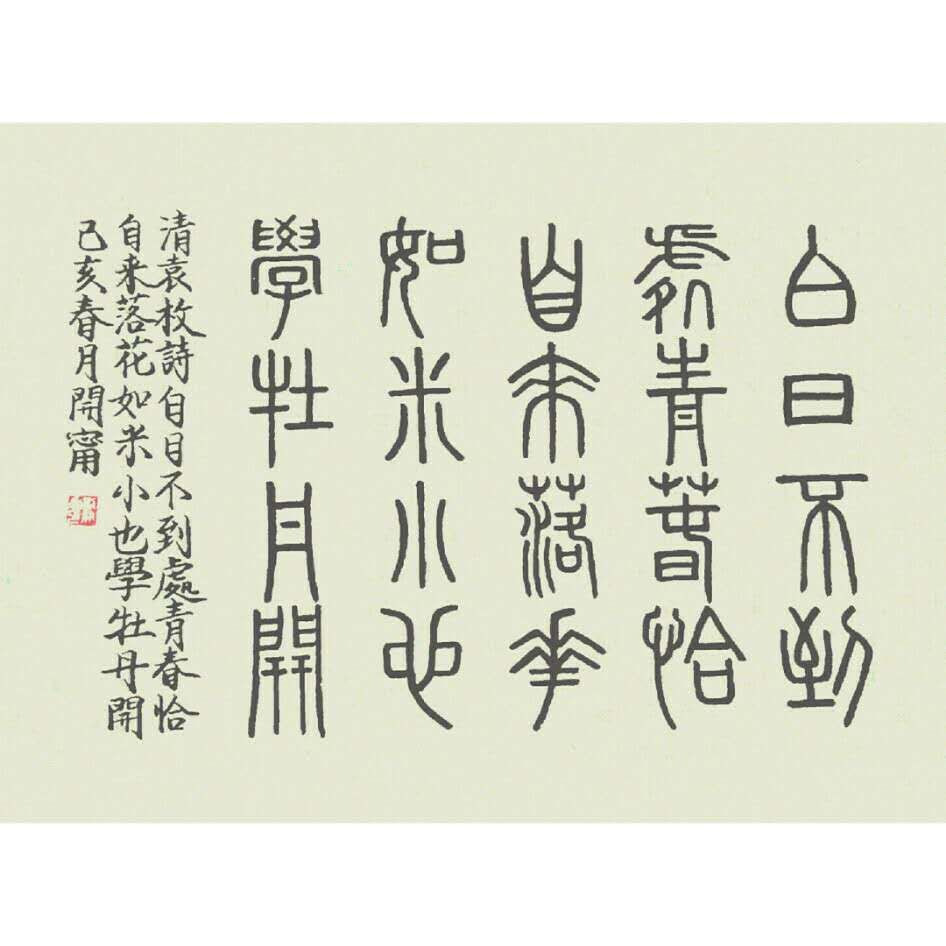 白日不到
處青春恰
自來落華
如米小也
學牡丹開
清袁枚詩白日不到處青春恰
自来落花如米小也學牡丹開
己亥春月開甯